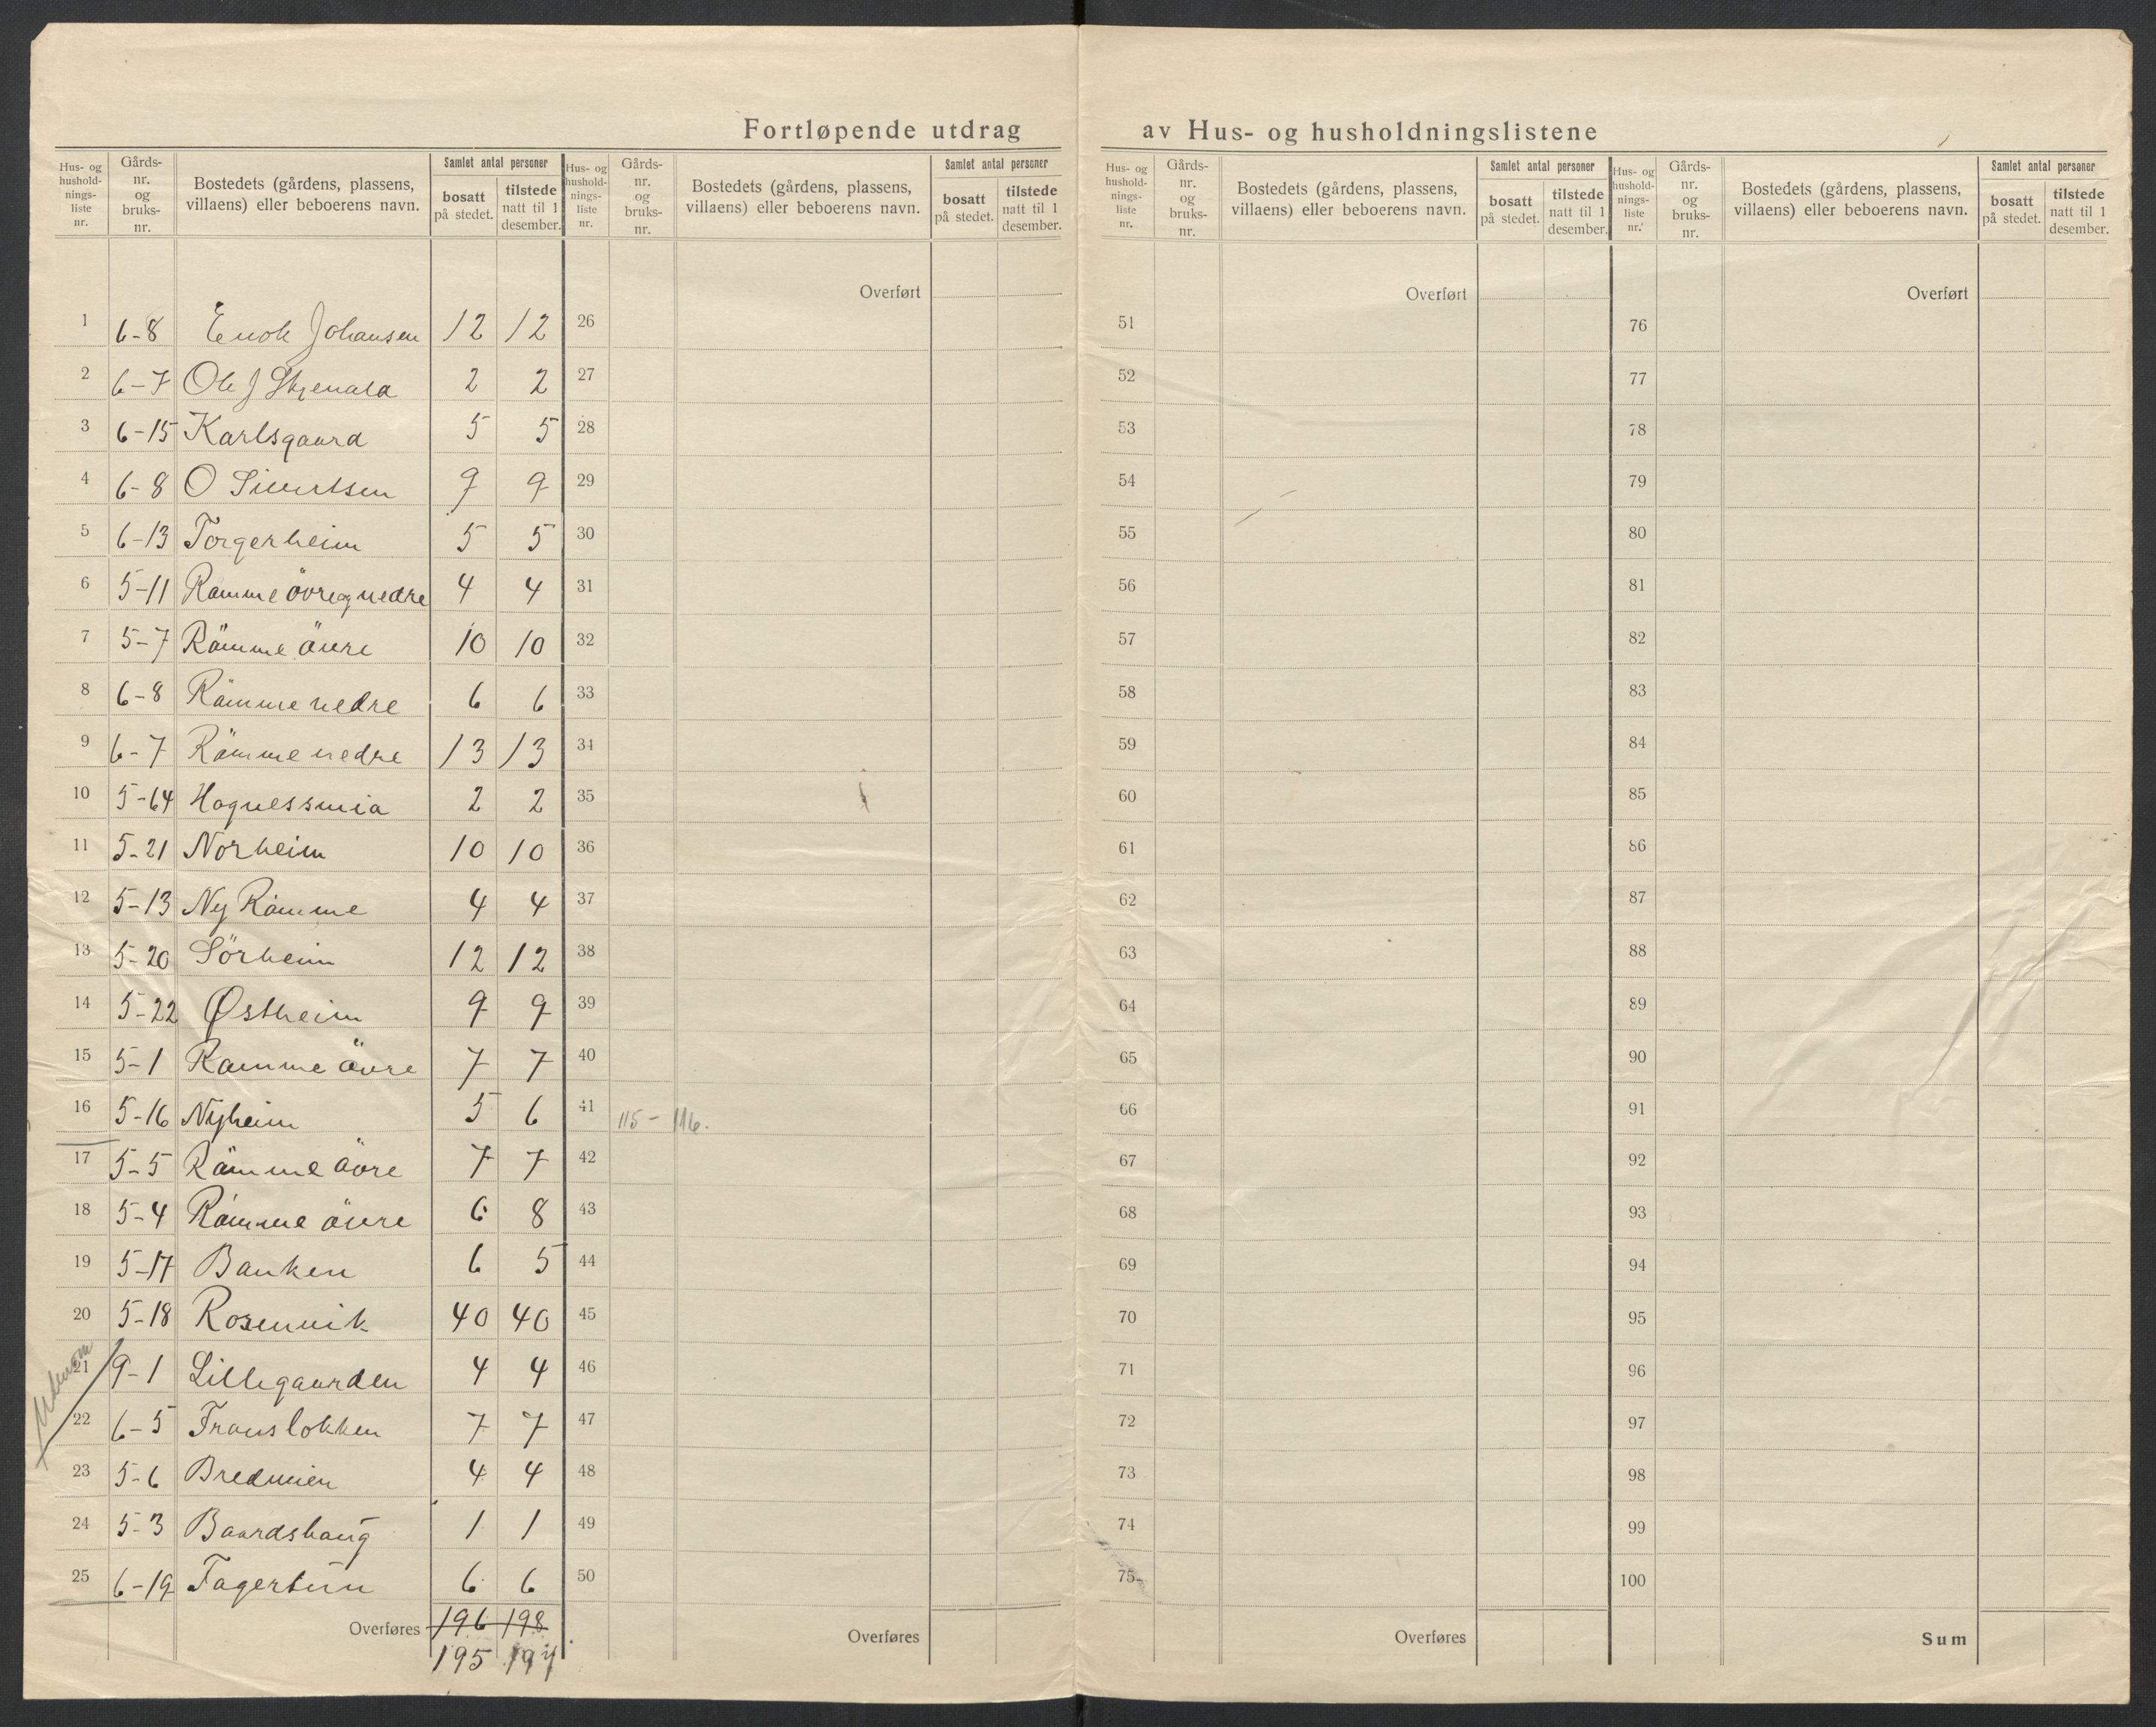 Fortløpende utdrag av Hus- og husholdningslistene
Hus- og hushold-nings-liste nr. Gårds-nr. og bruks-nr. Bostedets (gårdens, plassens, villaens) eller beboerens navn. Samlet antal personer bosatt på stedet. tilstede natt til 1 desember.
1 6-8 Enok Johansen 12 12
2 6-7 Ole J 2 2
3 6-15 Karlsgaard 5 5
4 6-8 O Sivertsen 9 9
5 6-13 Torgerheim 5 5
6 5-11 Ramme övre og nedre 4 4
7 5-7 Ramme övre 10 10
8 6-8 Ramme nedre 6 6
9 6-7 Ramme nedre 13 13
10 5-64 Hognessmia 2 2
11 5-21 Norheim 10 10
12 5-13 Ny Ramme 4 4
13 5-20 Sörheim 12 12
14 5-22 Østheim 9 9
15 5-1 Ramme övre 7 7
16 5-16 Nyheim 5 6
17 5-5 Ramme övre 7 7
18 5-4 Ramme övre 6 8
19 5-17 Banken 6 5
20 5-18 Rosenvik 40 40
21 9-1 Lillegaarden 4 4
22 6-5 Franslokken 7 7
23 5-6 Bredveien 4 4
24 5-3 Baardshaug 1 1
25 6-19 Fagertun 6 6
Overføres 196 198
195
Hus- og hushold-nings-liste nr. Gårds-nr. og bruks-nr. Bostedets (gårdens, plassens, villaens) eller beboerens navn. Samlet antal personer bosatt på stedet. tilstede natt til 1 desember.
Overført
26
27
28
29
30
31
32
33
34
35
36
37
38
39
40
41 115 - 116.
42
43
44
45
46
47
48
49
50
Overføres
Hus- og hushold-nings-liste nr. Gårds-nr. og bruks-nr. Bostedets (gårdens, plassens, villaens) eller beboerens navn. Samlet antal personer bosatt på stedet. tilstede natt til 1 desember.
Overført
51
52
53
54
55
56
57
58
59
60
61
62
63
64
65
66
67
68
69
70
71
72
73
74
75
Overføres
Hus- og hushold-nings-liste nr. Gårds-nr. og bruks-nr. Bostedets (gårdens, plassens, villaens) eller beboerens navn. Samlet antal personer bosatt på stedet. tilstede natt til 1 desember.
Overført
76
77
78
79
80
81
82
83
84
85
86
87
88
89
90
91
92
93
94
95
96
97
98
99
100
Sum